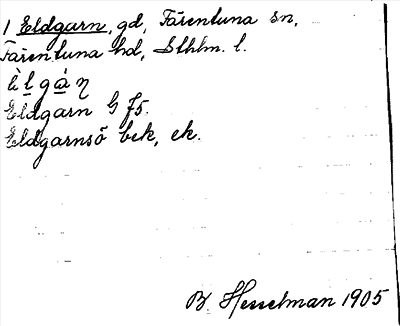 1 Eldgarn, gd, Färentuna sn,
Färentuna hd, Sthlm. l.
Eldgarn G f5.
Eldgarnsö bek, ek.
B. Hesselman 1905